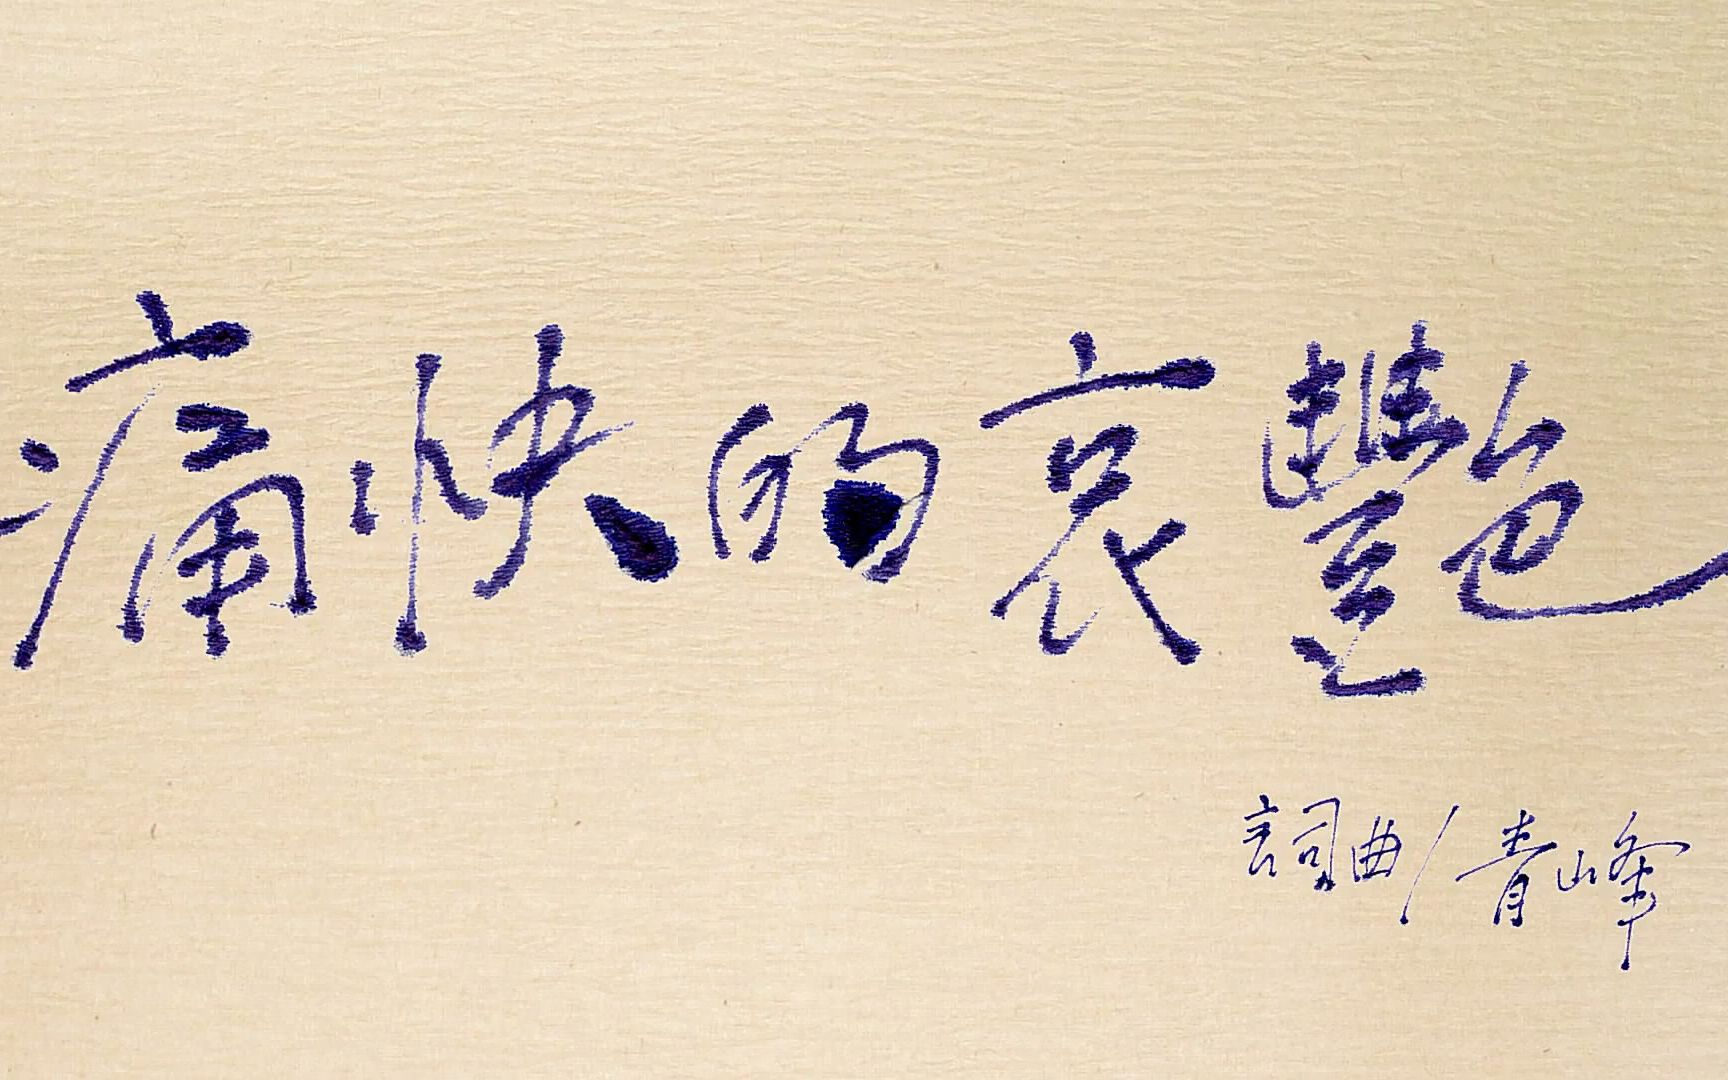 痛快的哀艷
詞曲/青峰